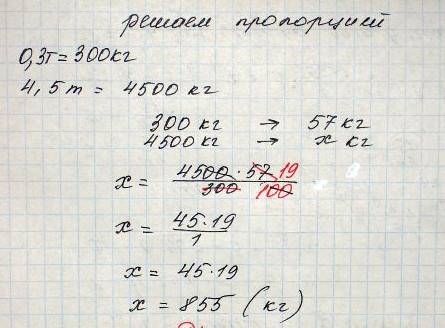 решаем пропорцией
0,3т = 300кг
4,5т = 4500 кг
300 кг → 57 кг
4500 кг → x кг
x = 4500 · 57 19 / 300 100
x = 45·19 / 1
x = 45·19
x = 855 (кг)